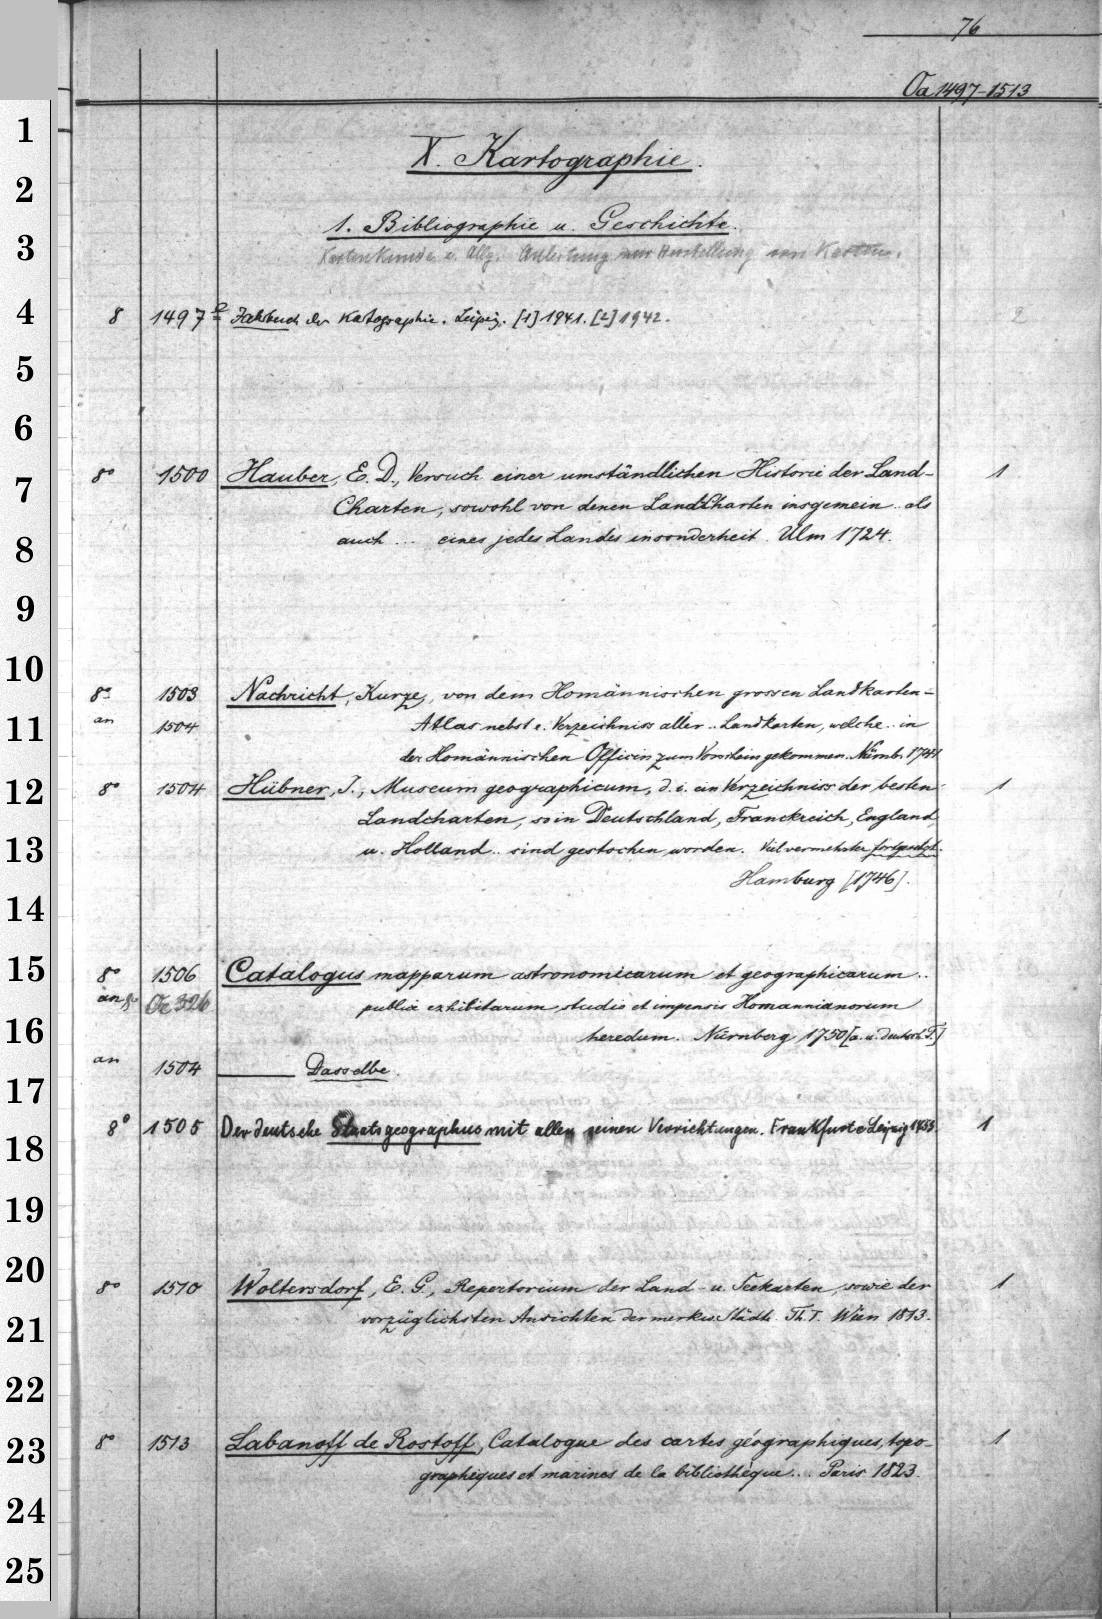 76
Oa 1497-1513
1
X. Kartographie.
2
1. Bibliographie u. Geschichte.
3
Kartenkunde u. Allg. Anleitung zur Herstellung von Karten.
4
8 1497 Jahrbuch der Kartographie. Leipzig. [1] 1941. [2] 1942. 2
5
6
7
8° 1500 Hauber, E. D., Versuch einer umständlichen Historie der Land- 1
Charten, sowohl von denen LandCharten insgemein .. als
8
auch ... eines jedes Landes insonderheit. Ulm 1724.
9
10
8° 1503 Nachricht, Kurze, von dem Homännischen grossen Landkarten-
11
an 1504 Atlas nebst e. Verzeichniss aller .. Landkarten, welche .. in
der Homännischen Officin zum Vorschein gekommen. Nürnb. 1741
12
8° 1504 Hübner, J., Museum geographicum, d. i. ein Verzeichniss der besten 1
Landcharten, so in Deutschland, Franckreich, England
13
u. Holland .. sind gestochen worden. Viel vermehrter fortgesetzt.
Hamburg [1746].
14
15
8° 1506 Catalogus mapparum astronomicarum et geographicarum ..
an 8° Oc 326 publice exhibitarum studio et impensis Homannianorum
16
heredum. Nürnberg 1750 [a. u. deutsch. T.]
17
an 1504 ——— Dasselbe.
18
8° 1505 Der deutsche Staatsgeographus mit allen seinen Verrichtungen. Frankfurt e Leipzig 1753 1
19
20
8° 1510 Woltersdorf, E. G., Repertorium der Land- u. Seekarten, sowie der 1
21
vorzüglichsten Ansichten der merkw. Städte. Th. I. Wien 1813.
22
23
8° 1513 Labanoff de Rostoff, Catalogue des cartes géographiques, topo- 1
graphiques et marines de la bibliothèque ... Paris 1823.
24
25